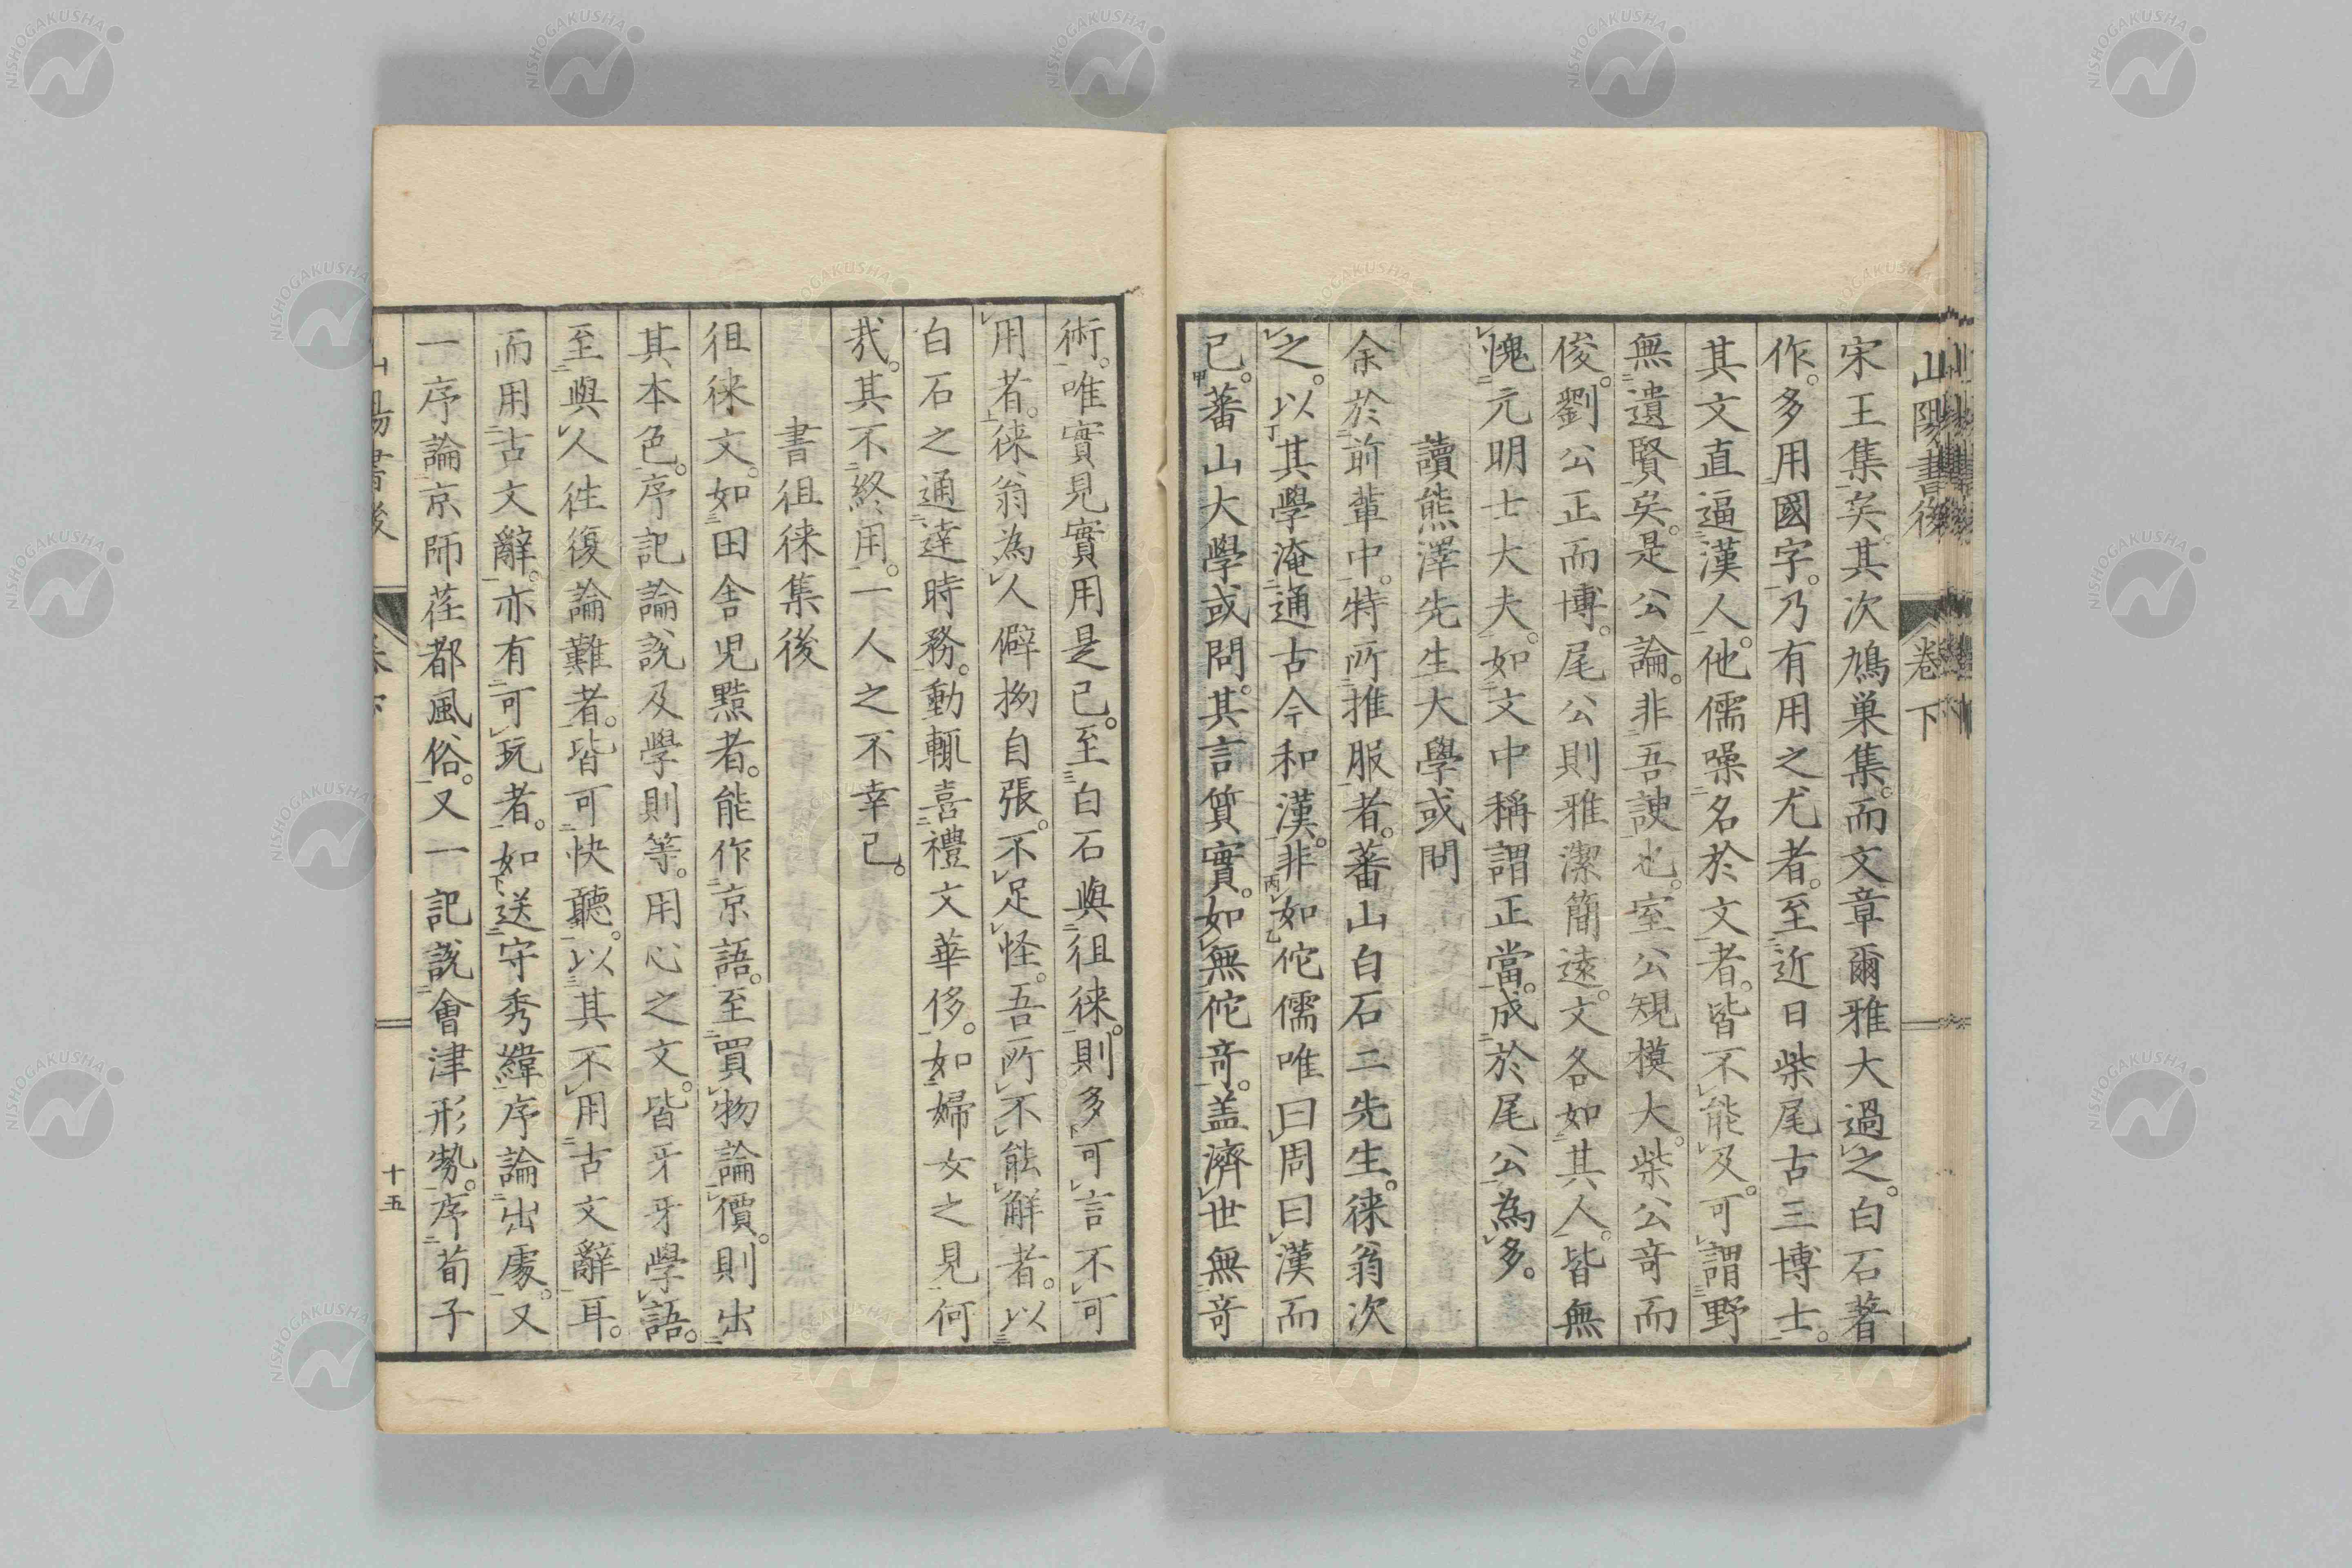 山陽書後 卷下
宋王集矣。其次鳩巢集。而文章爾雅大過之。白石著
作。多用國字。乃有用之尤者。至近日柴尾古三博士。
其文直逼漢人。他儒噪名於文者。皆不能及。可謂野
無遺賢矣。是公論。非吾諛也。室公規模大。柴公奇而
俊。劉公正而博。尾公則雅潔簡遠。文各如其人。皆無
愧元明士大夫。如文中稱謂正當。成於尾公為多。
讀熊澤先生大學或問
余於前輩中。特所推服者。蕃山白石二先生。徠翁次
之。以其學淹通古今和漢。非如佗儒唯曰周曰漢而
已。蕃山大學或問。其言質實。如無佗奇。盖濟世無奇
術。唯實見實用是已。至白石與徂徠。則多可言不可
用者。徠翁為人僻拗自張。不足怪。吾所不能解者。以
白石之通達時務。動輒喜禮文華侈。如婦女之見何
哉。其不終用。一人之不幸已。
書徂徠集後
徂徠文。如田舍児點者。能作京語。至買物論價。則出
其本色。序記論說及學則等。用心之文。皆牙牙學語。
至與人往復論難者。皆可快聽。以其不用古文辭耳。
而用古文辭。亦有可玩者。如送守秀緯序論出處。又
一序論京師荏都風俗。又一記說會津形勢。序荀子
山陽書後
十五
NISHOGAKUSHA